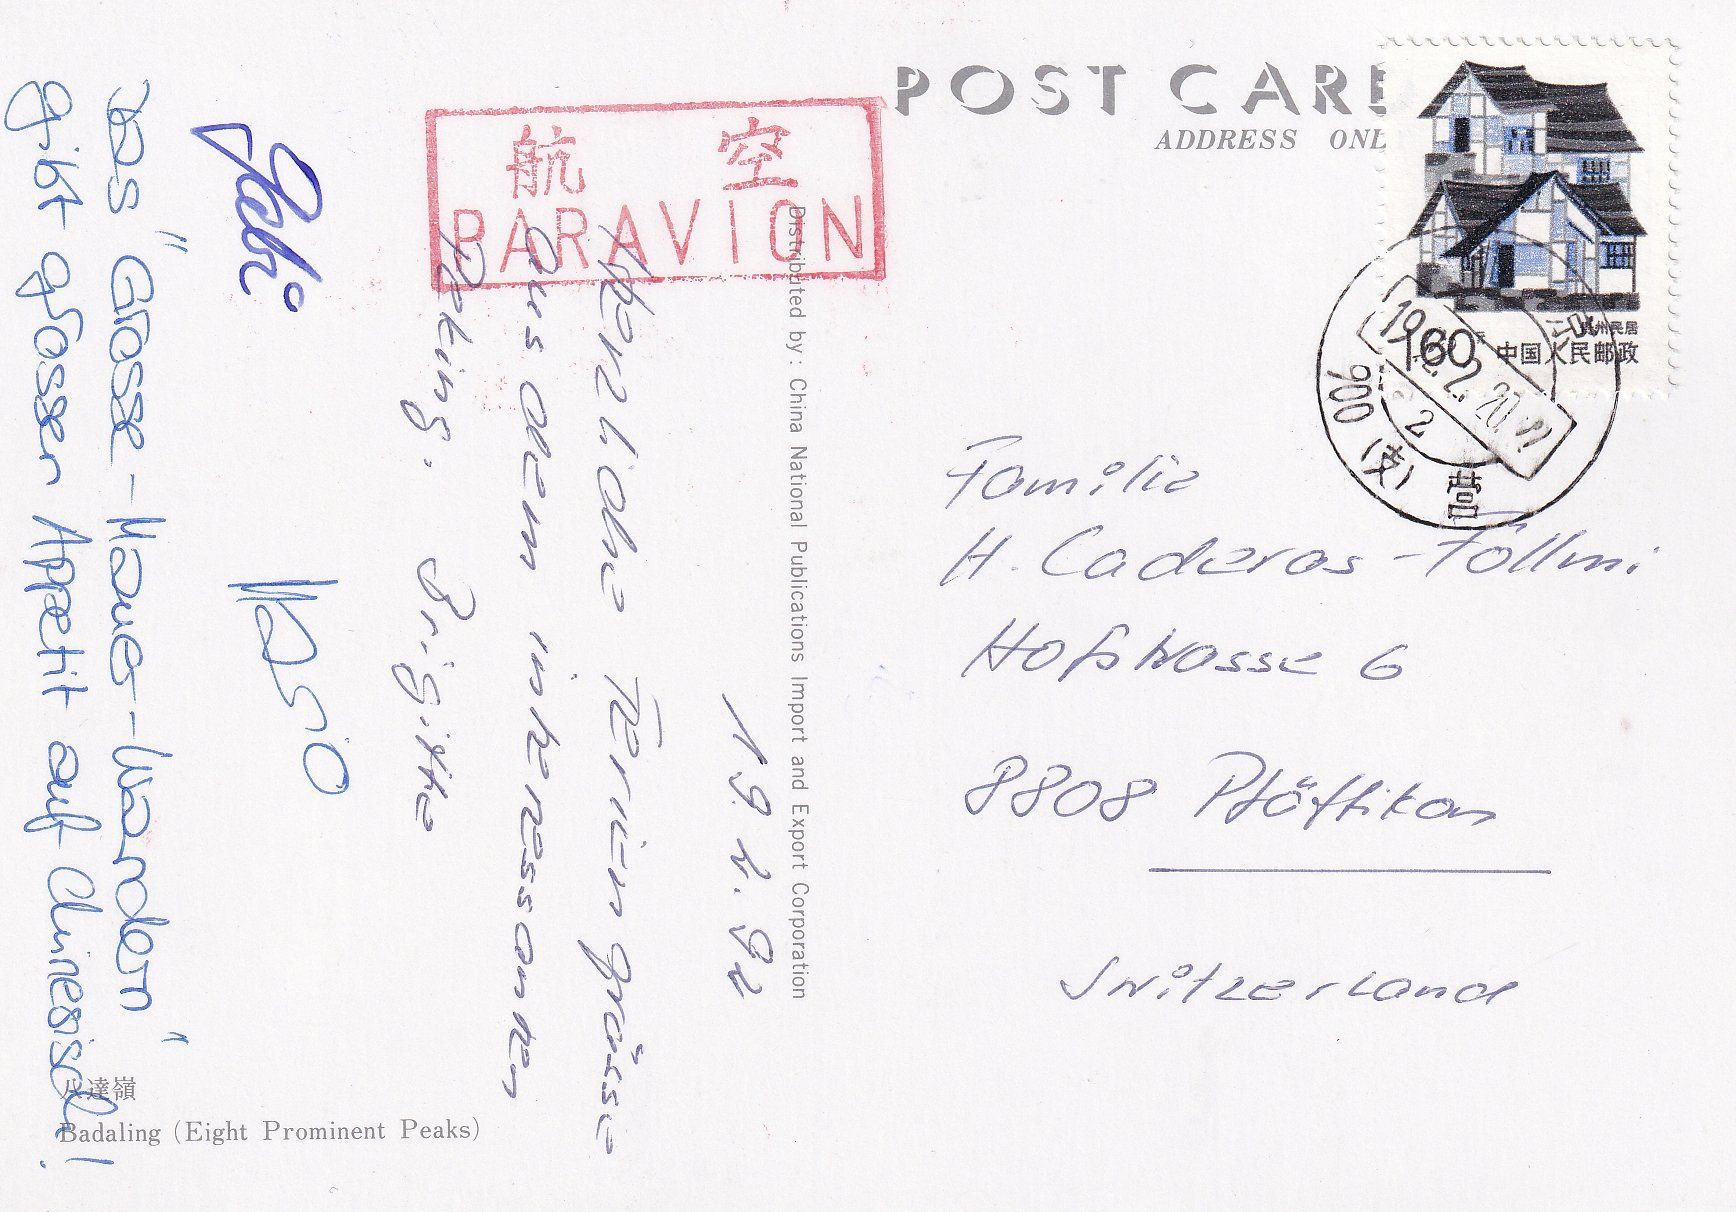 POST CARD
ADDRESS ONL
航空
PAR AVION
19.2.92
Herzliche Feriengrüsse
aus dem interessanten
Peking. Brigitte
Gabi
das "Grosse-Mauer-Wandern"
gibt grossen Appetit auf Chinesisch!
八達嶺
Badaling (Eight Prominent Peaks)
Distributed by : China National Publications Import and Export Corporation
贵州民居
160 中国人民邮政
1992.2.20
900 (支)
2
营
Familie
H. Caderas-Föllmi
Hofstrasse 6
8808 Pfäffikon
Switzerland